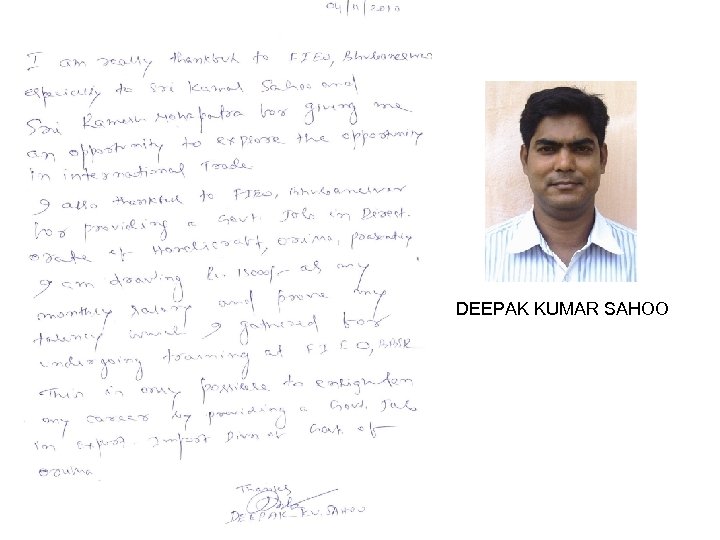 04/11/2010
I am really thankful to FIEO, Bhubaneswar
especially to Sri Kamal Sahoo and
Sri Ramesh Mohapatra for giving me
an opportunity to explore the opportunity
in international Trade
I also thankful to FIEO, Bhubaneswar
for providing a Govt. Job in Direct.
orate of Handicraft, Orissa, presently
I am drawing Rs. 15000/- as my
monthly salary and prove my
talency which I gathered for
undergoing training at FIEO, BBSR
This is only possible to enlighten
my career by providing a Govt. Job
in Export - Import Divn of Govt. of
Orissa.
Thanks
DEEPAK KU. SAHOO
DEEPAK KUMAR SAHOO